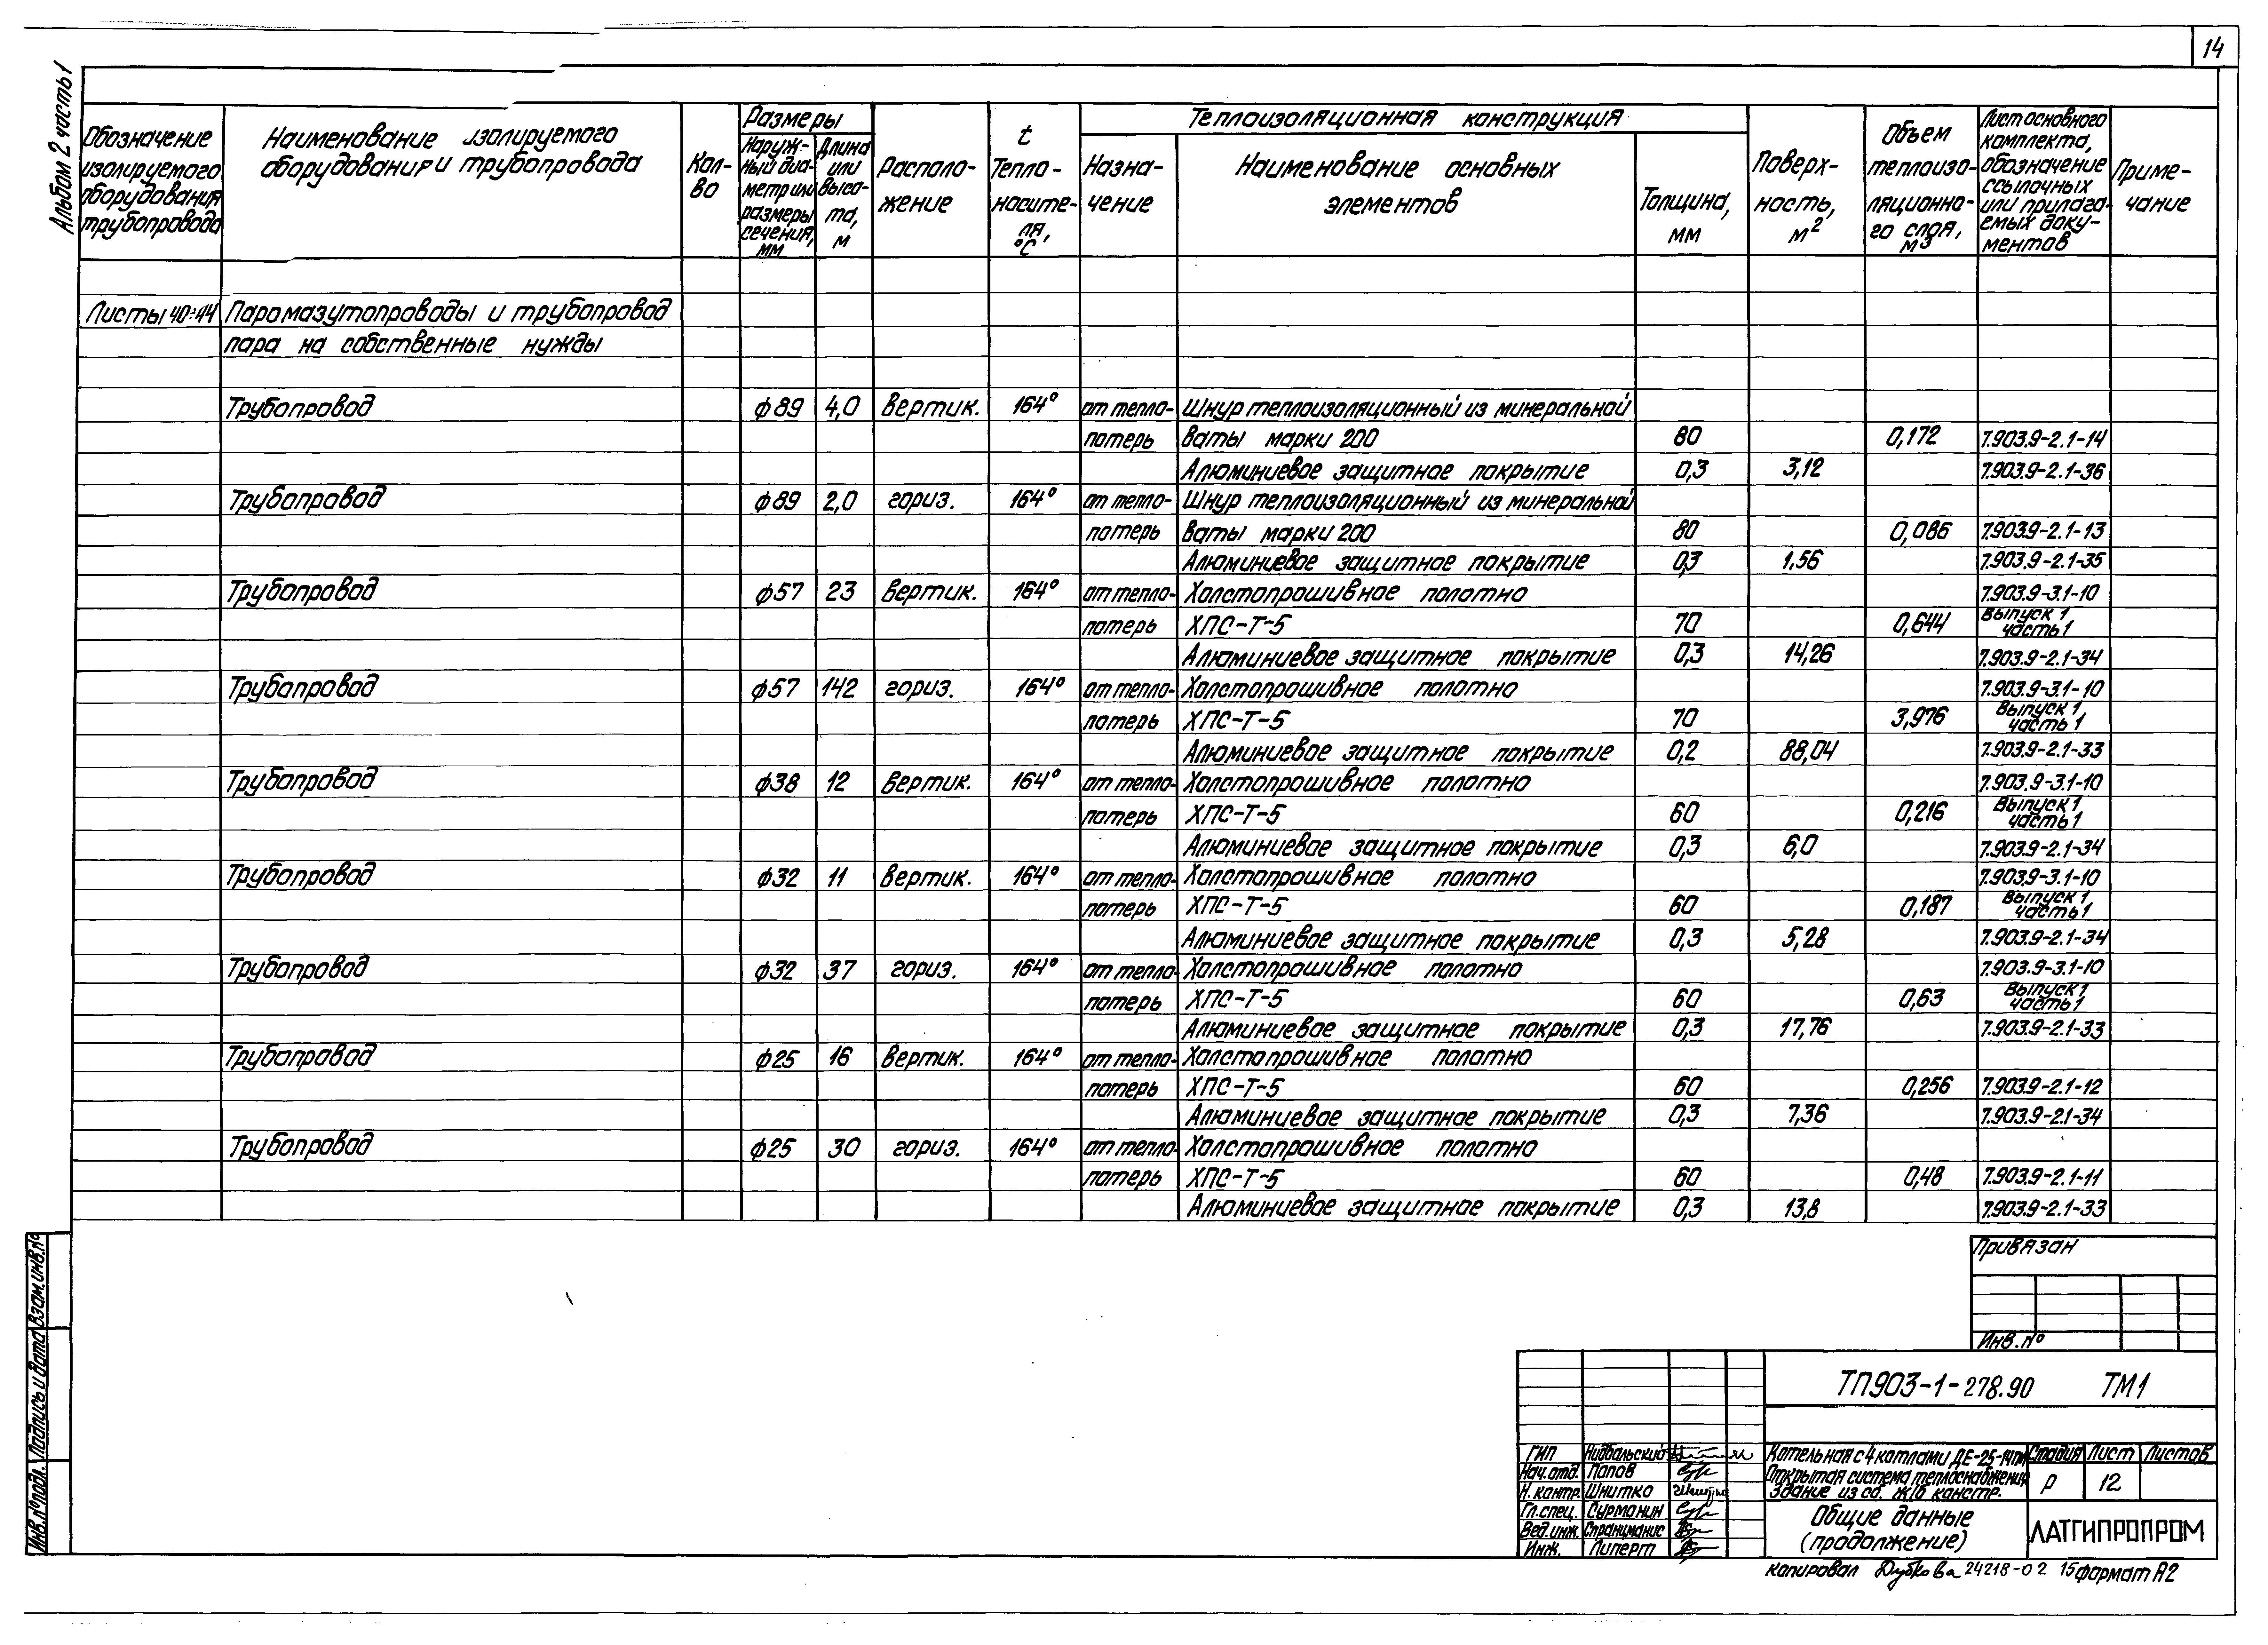 14
Альбом 2 часть 1
Обозначение изолируемого оборудования трубопровода
Наименование изолируемого оборудования и трубопровода
Кол-во
Размеры
Наруж-ный диа-метр или размеры сечения, мм
Длина или высо-та, м
Располо-жение
t Тепло-носите-ля, °С
Теплоизоляционная конструкция
Назна-чение
Наименование основных элементов
Толщина, мм
Поверх-ность, м²
Объем теплоизо-ляционно-го слоя, м³
Лист основного комплекта, обозначение ссылочных или прилага-емых доку-ментов
Приме-чание
Листы 40÷44 Паромазутопроводы и трубопровод
пара на собственные нужды
Трубопровод ф89 4,0 вертик. 164° от тепло- Шнур теплоизоляционный из минеральной
потерь ваты марки 200 80 0,172 7.903.9-2.1-14
Алюминиевое защитное покрытие 0,3 3,12 7.903.9-2.1-36
Трубопровод ф89 2,0 гориз. 164° от тепло- Шнур теплоизоляционный из минеральной
потерь ваты марки 200 80 0,086 7.903.9-2.1-13
Алюминиевое защитное покрытие 0,3 1,56 7.903.9-2.1-35
Трубопровод ф57 23 вертик. 164° от тепло- Холстопрошивное полотно 7.903.9-3.1-10
потерь ХПС-Т-5 70 0,644 Выпуск 1 часть 1
Алюминиевое защитное покрытие 0,3 14,26 7.903.9-2.1-34
Трубопровод ф57 142 гориз. 164° от тепло- Холстопрошивное полотно 7.903.9-3.1-10
потерь ХПС-Т-5 70 3,976 Выпуск 1, часть 1
Алюминиевое защитное покрытие 0,2 88,04 7.903.9-2.1-33
Трубопровод ф38 12 вертик. 164° от тепло- Холстопрошивное полотно 7.903.9-3.1-10
потерь ХПС-Т-5 60 0,216 Выпуск 1, часть 1
Алюминиевое защитное покрытие 0,3 6,0 7.903.9-2.1-34
Трубопровод ф32 11 вертик. 164° от тепло- Холстопрошивное полотно 7.903.9-3.1-10
потерь ХПС-Т-5 60 0,187 Выпуск 1 часть 1
Алюминиевое защитное покрытие 0,3 5,28 7.903.9-2.1-34
Трубопровод ф32 37 гориз. 164° от тепло- Холстопрошивное полотно 7.903.9-3.1-10
потерь ХПС-Т-5 60 0,63 Выпуск 1 часть 1
Алюминиевое защитное покрытие 0,3 17,76 7.903.9-2.1-33
Трубопровод ф25 16 вертик. 164° от тепло- Холстопрошивное полотно
потерь ХПС-Т-5 60 0,256 7.903.9-2.1-12
Алюминиевое защитное покрытие 0,3 7,36 7.903.9-2.1-34
Трубопровод ф25 30 гориз. 164° от тепло- Холстопрошивное полотно
потерь ХПС-Т-5 60 0,48 7.903.9-2.1-11
Алюминиевое защитное покрытие 0,3 13,8 7.903.9-2.1-33
Привязан
Инв. №
Инв. № подл. Подпись и дата Взам. инв. №
ТП903-1-278.90 ТМ1
ГИП Нидбальский
Нач.отд. Попов
Н. контр. Шнитко
Гл.спец. Сурманин
Вед.инж. Спранцманис
Инж. Липерт
Котельная с 4 котлами ДЕ-25-14ГМ
Открытая система теплоснабжения
Здание из сб. ж/б констр.
Стадия Лист Листов
Р 12
Общие данные
(продолжение)
ЛАТГИПРОПРОМ
копировал Дубкова 24218-02 15 формат А2